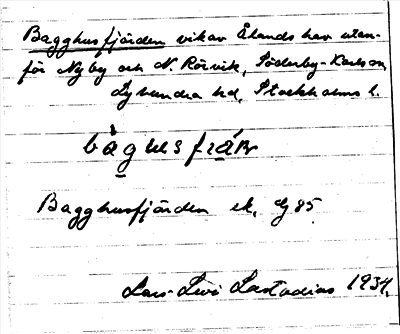 Bagghusfjärden vik av Ålands hav utan-
för Nyby och N. Rörvik, Söderby-Karlsn,
Lyhundra hd, Stockholms l.
bàgusfjáɳ
Bagghusfjärden ek. Gg 85
Lars-Levi Læstadius 1934.